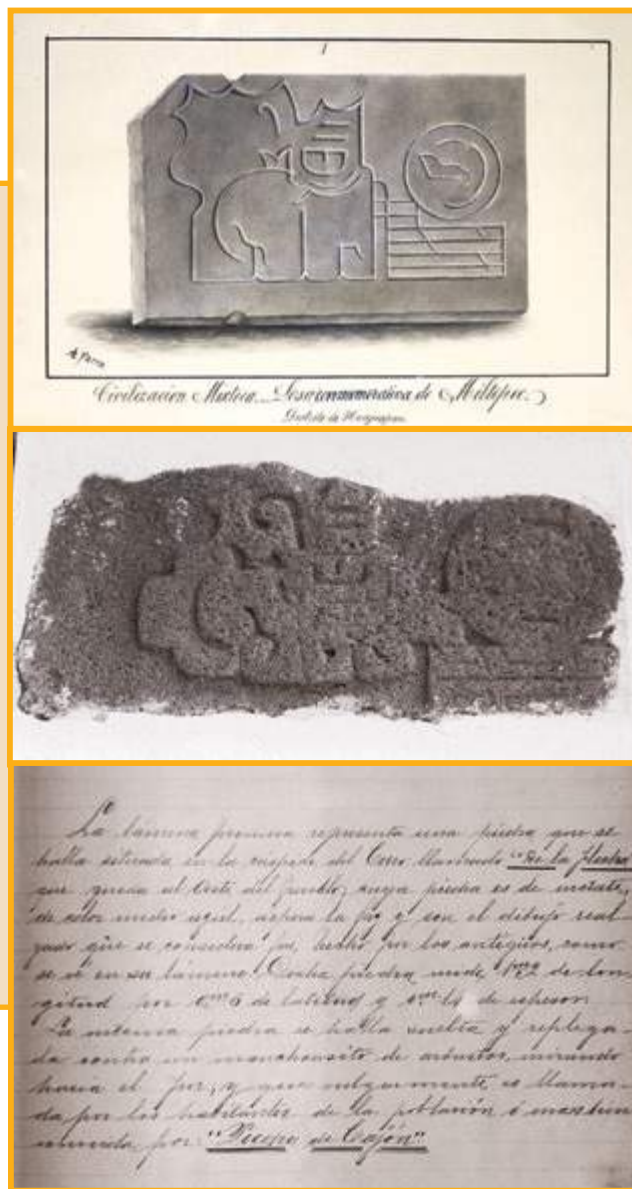 1
A. Parra
Civilización Mixteca. Losa conmemorativa de Miltepec.
Distrito de Huajuapan.
La lámina primera representa una piedra que se
halla situada en la cúspide del Cerro llamado "De la flecha"
que queda al Oeste del pueblo, cuya piedra es de
de color medio azul, y con el dibujo real
zado que se considera fue hecho por los antiguos, como
se vé en su lámina. Dicha piedra mide de lon
gitud por de latitud y de espesor.
La misma piedra se halla suelta y replega
da contra un de mirando
hacia el Sur, y que vulgarmente es llama
da por los habitantes de la población
por "Piedra de Cajón".